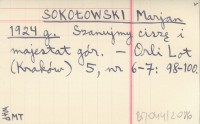 SOKOŁOWSKI Marjan
1924 g. Szanujmy ciszę i
majestat gór. — Orli Lot
(Kraków) 5, nr 6-7: 98-100.
MT